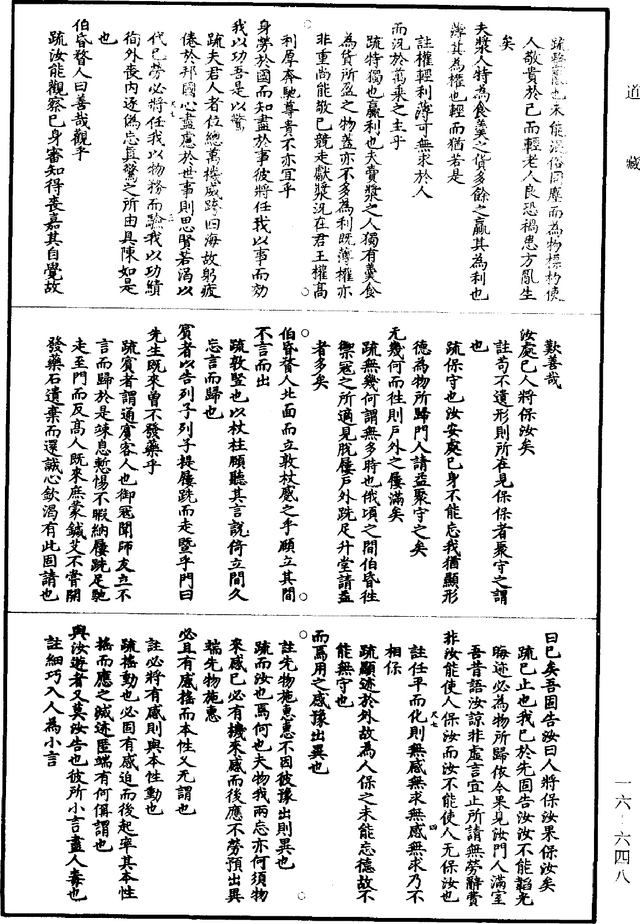 道藏
疏整亂也未能混俗同塵而為物標杓使
人敬貴於己而輕老人良恐禍患方亂生
矣
夫漿人特為食羹之貨多餘之贏其為利也
薄其為權也輕而猶若是
註權輕利薄可無求於人
而況於萬乘之主乎
疏特獨也贏利也夫賣漿之人獨有羹食
為貨所盈之物蓋亦不多為利既薄權亦
非重尚能敬己競走獻漿況在君王權高
利厚奔馳尊貴不亦宜乎
身勞於國而知盡於事彼將任我以事而効
我以功吾是以驚
疏夫君人者位總萬機威跨四海故躬疲
倦於邦國心盡慮於世事則思賢若渴以
代己勞必將任我以物務而驗我以功績
徇外喪內逐偽忘真驚之所由具陳如是
也
伯昏瞀人曰善哉觀乎
疏汝能觀察己身審知得喪嘉其自覺故
歎善哉
汝處己人將保汝矣
註苟不遺形則所在見保保者聚守之謂
也
疏保守也汝安處己身不能忘我猶顯形
德為物所歸門人請益聚守之矣
无幾何而往則戶外之屨滿矣
疏無幾何謂無多時也俄頃之間伯昏往
禦寇之所適見脫屨戶外跣足升堂請益
者多矣
伯昏瞀人北面而立敦杖蹙之乎頤立其間
不言而出
疏敦豎也以杖柱頤聽其言說倚立間久
忘言而歸也
賓者以告列子列子提屨跣而走暨乎門曰
先生既來曾不發藥乎
疏賓者謂通賓客人也御寇聞師友立不
言而歸於是竦息慙惕不暇納屨跣足馳
走至門而反高人既來庶蒙鍼艾不嘗開
發藥石遺棄而還誠心欽渴有此固請也
曰已矣吾固告汝曰人將保汝果保汝矣
疏已止也我已於先固告汝汝不能韜光
晦迹必為物所歸依今果見汝門人滿室
吾昔語汝諒非虛言宜止所請無勞辭費
非汝能使人保汝而汝不能使人无保汝也
註任平而化則無感無求無感無求乃不
相保
疏顯迹於外故為人保之未能忘德故不
能無守也
而焉用之感豫出異也
註先物施惠惠不因彼豫出則異也
疏而汝也焉何也夫物我兩忘亦何須物
來感己必有機來感而後應不勞預出異
端先物施惠
必且有感搖而本性又无謂也
註必將有感則與本性動也
疏搖動也必固有感迫而後起率其本性
搖而應之滅迹匿端有何偁謂也
與汝遊者又莫汝告也彼所小言盡人毒也
註細巧入人為小言
一六–六四八